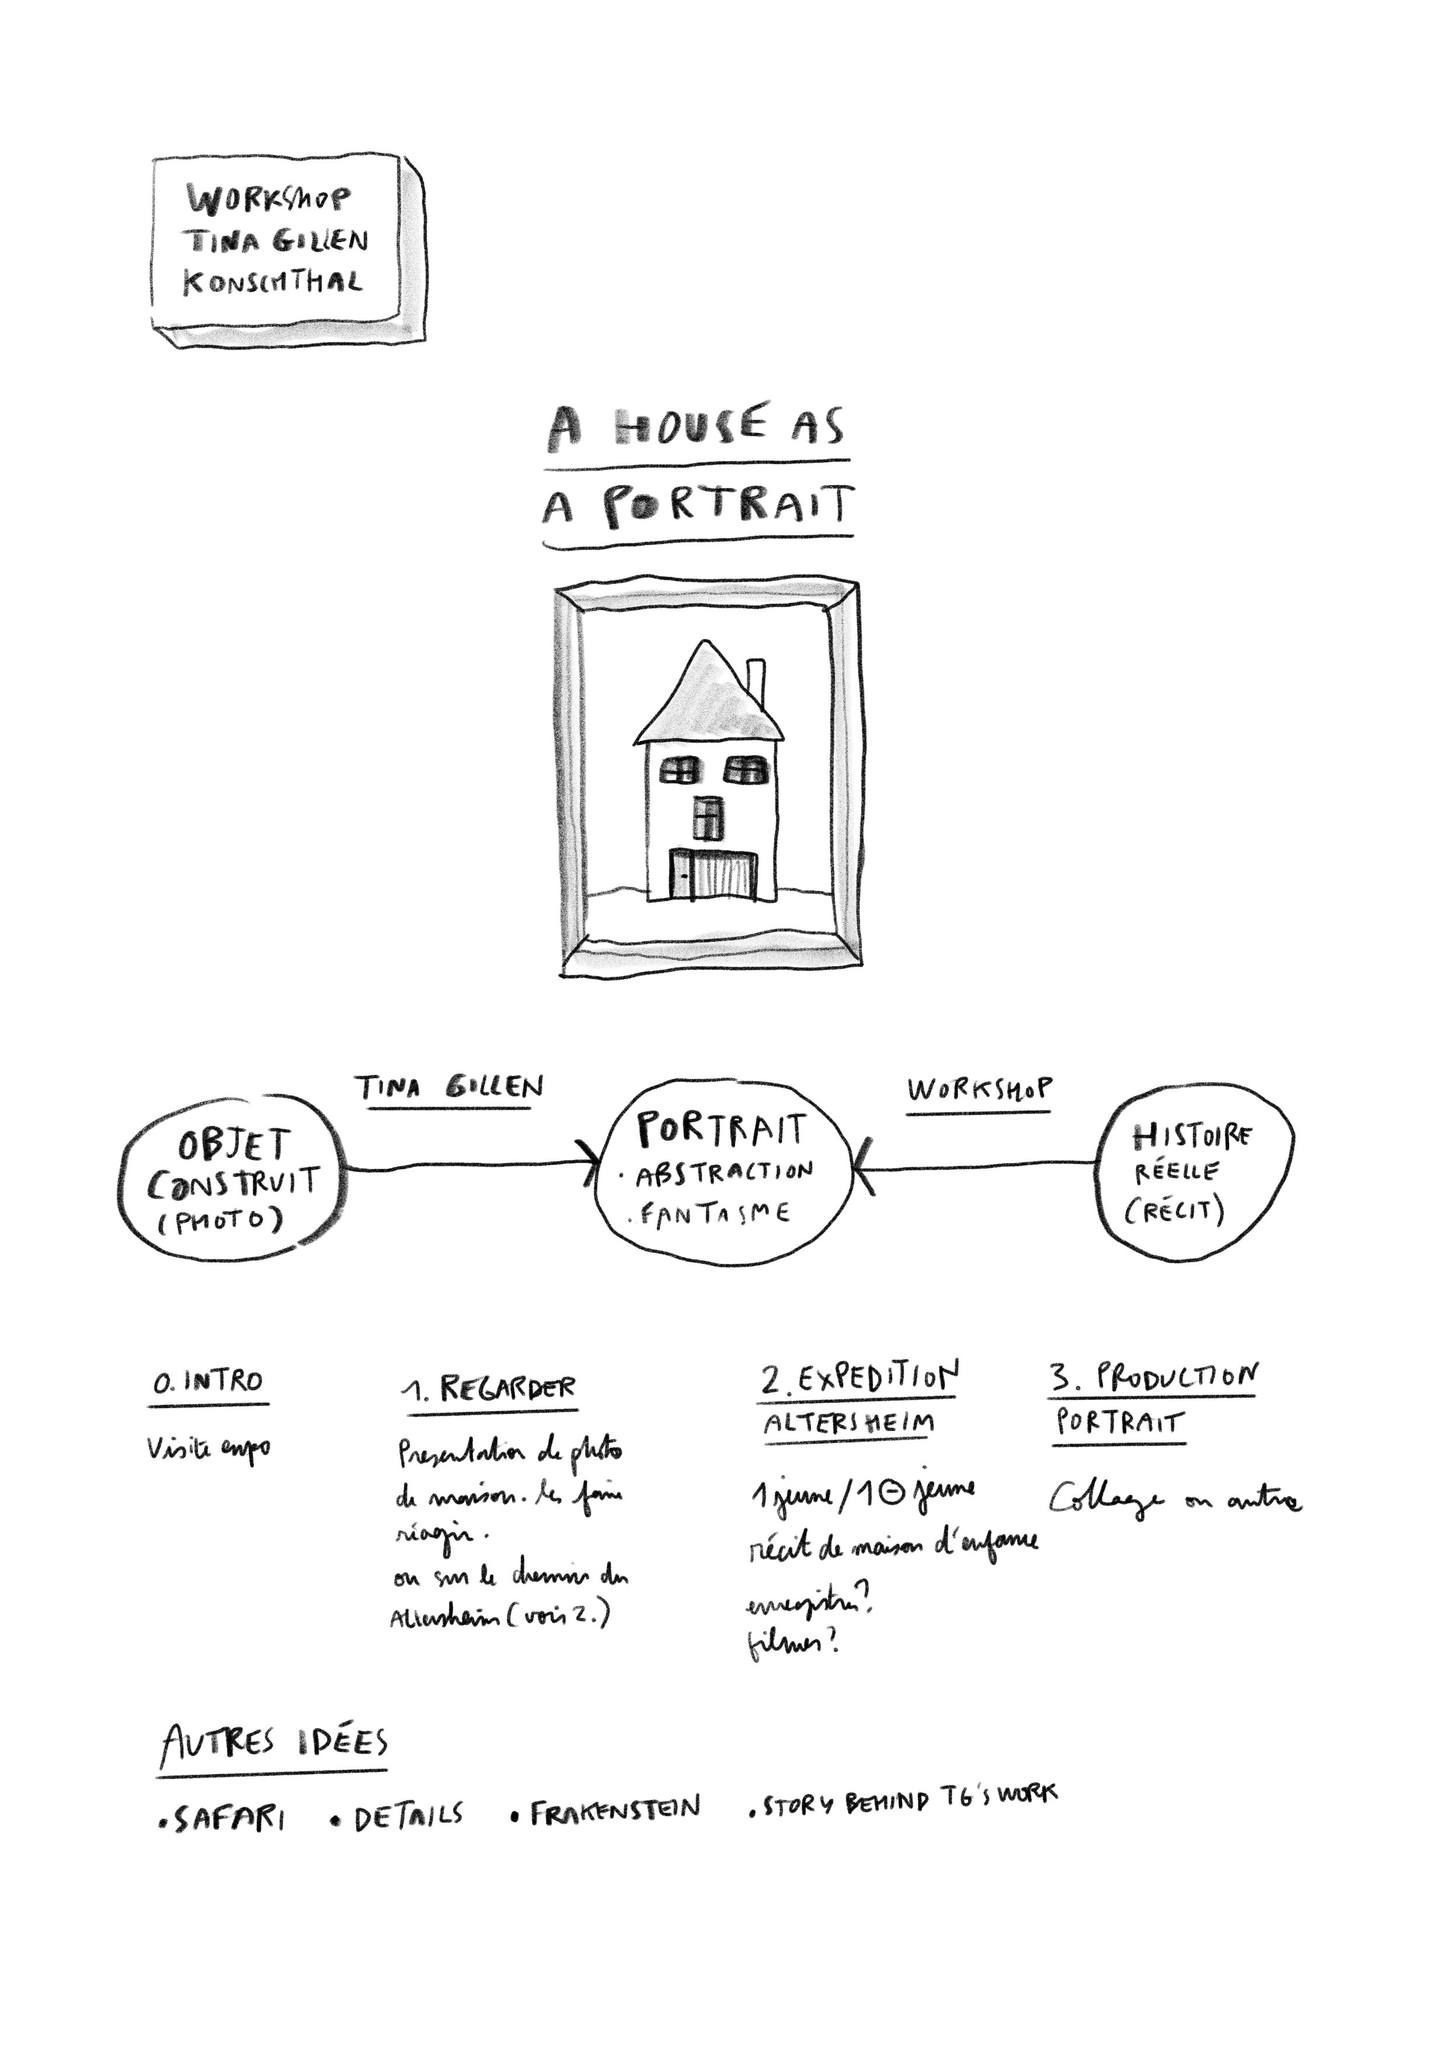 WORKSHOP
TINA GILLEN
KONSCHTHAL
A HOUSE AS
A PORTRAIT
TINA GILLEN
WORKSHOP
OBJET
CONSTRUIT
(PHOTO)
PORTRAIT
· ABSTRACTION
· FANTASME
HISTOIRE
RÉELLE
(RÉCIT)
0. INTRO
Visite expo
1. REGARDER
Presentation de photo
de maison. les faire
réagir.
ou sur le chemin du
Altersheim (voir 2.)
2. EXPEDITION
ALTERSHEIM
1 jeune / 1 ⊖ jeune
récit de maison d'enfance
enregistrer?
filmer?
3. PRODUCTION
PORTRAIT
Collage ou autre
AUTRES IDÉES
• SAFARI • DETAILS • FRAKENSTEIN • STORY BEHIND TG'S WORK